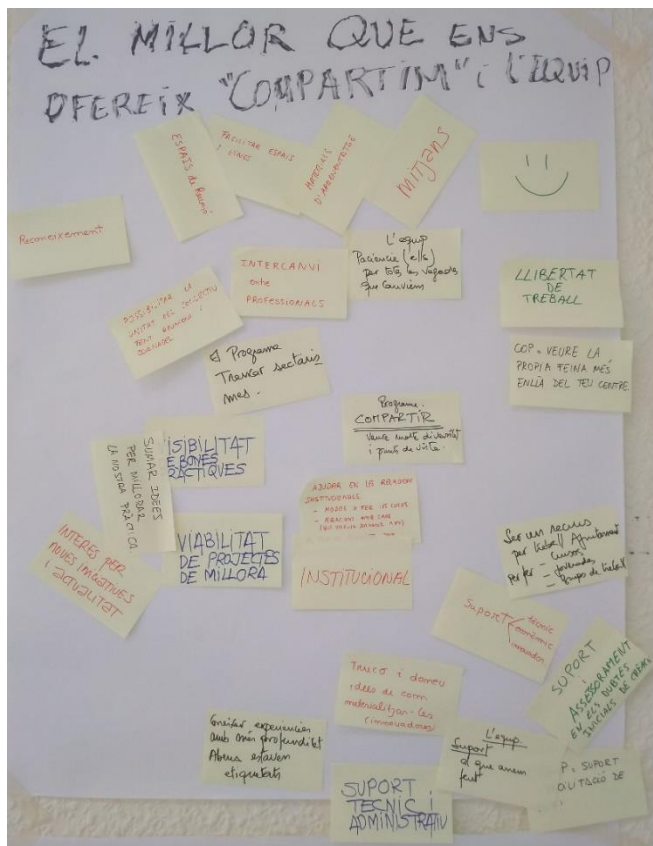 EL MILLOR QUE ENS
OFEREIX "COMPARTIM" i L'EQUIP
ESPAIS de Relació
FACILITAR ESPAIS
I EINES
MATERIALS
D'APRENENTATGE
MITJANS
Reconeixement
INTERCANVI
entre
PROFESSIONALS
L'equip
Paciencia (ells)
per totes les vegades
que canviem
LLIBERTAT
DE
TREBALL
POSSIBILITAR LA
DEL COL·LECTIU
FENT REUNIONS I
JORNADES
El Programa
Trencar sectaris
mes.
COP. VEURE LA
PROPIA FEINA MÉS
ENLLÀ DEL TEU CENTRE.
Programa.
COMPARTIR
veure molta diversitat
i punts de vista.
SUMAR IDEES
PER MILLORAR
LA NOSTRA PRÀCTICA
ISIBILITAT
E BONES
RÀCTIQUES
AJUDAR EN LA RELACIÓ
INSTITUCIONALS
INTERES PER
NOVES INICIATIVES
I ACTUALITAT
VIABILITAT
DE PROJECTES
DE MILLORA
INSTITUCIONAL
Ser un recurs
per treball Ajuntament
per fer - Cursos
- Jornades
- Grups de treball
SUPORT
tècnic
econòmic
innovador
SUPORT
i
ASSESSORAMENT
EN ELS DUBTES
INICIALS DE
Truco i doneu
idees de com
materialitzar-les
(innovadores)
Conèixer experiències
amb més profunditat
Abans estaven
etiquetats
L'equip.
Suport
al que anem
fent
P. SUPORT
ILITACIÓ DE
SUPORT
TECNIC i
ADMINISTRATIU